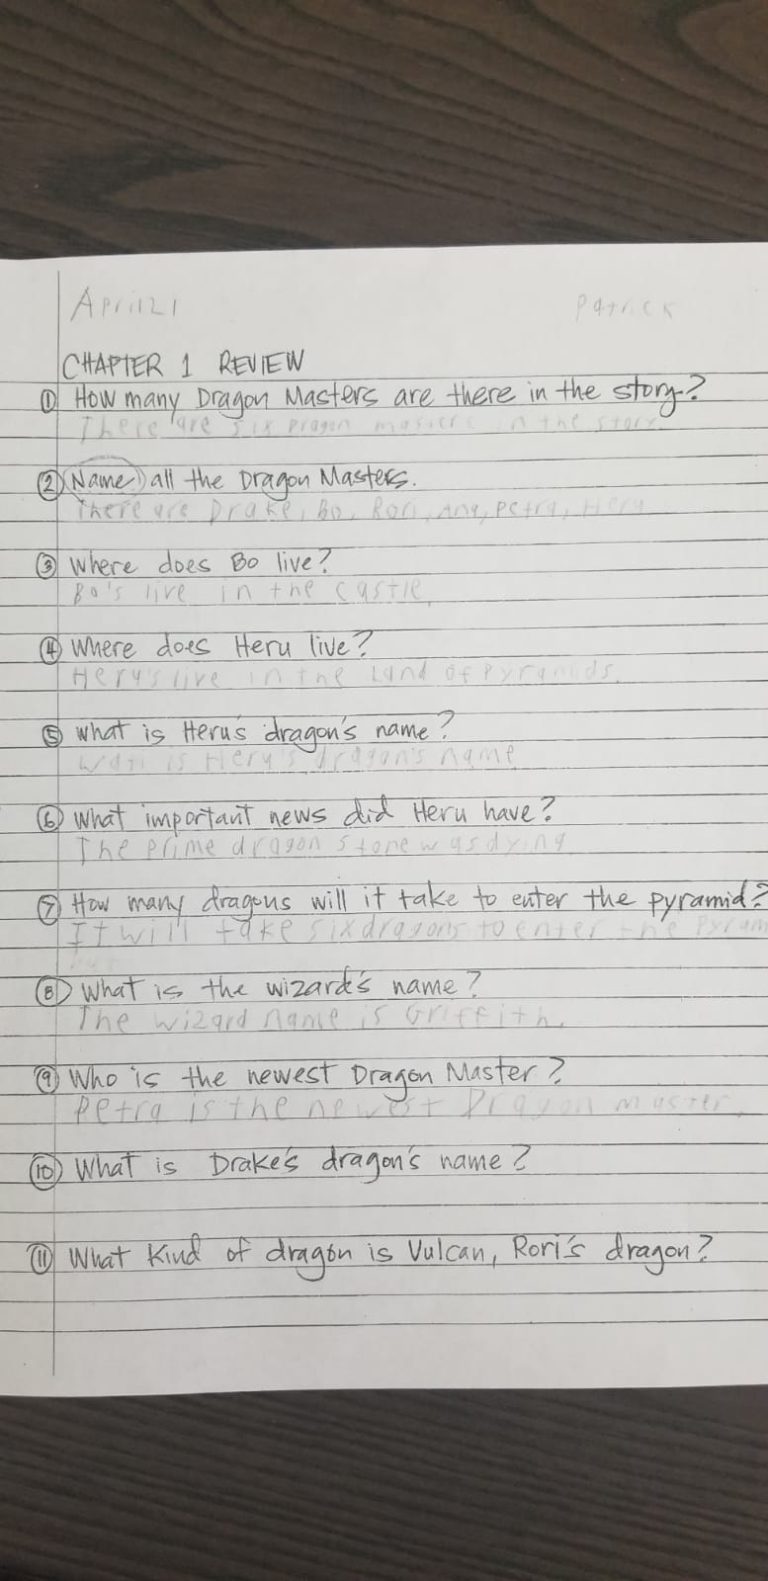 April 21 Patrick
CHAPTER 1 REVIEW
① How many Dragon Masters are there in the story?
There are six Dragon masters in the story
② Name all the Dragon Masters.
There are Drake, Bo, Rori, Ana, Petra, Heru
③ Where does Bo live?
Bo's live in the castle.
④ Where does Heru live?
Heru's live in the Land of Pyramids.
⑤ What is Heru's dragon's name?
Wati is Heru's dragon's name
⑥ What important news did Heru have?
The prime dragon stone was dying
⑦ How many dragons will it take to enter the pyramid?
It will take six dragons to enter the Pyram
⑧ What is the wizard's name?
The wizard name is Griffith.
⑨ Who is the newest Dragon Master?
Petra is the newest Dragon master.
⑩ What is Drake's dragon's name?
⑪ What kind of dragon is Vulcan, Rori's dragon?